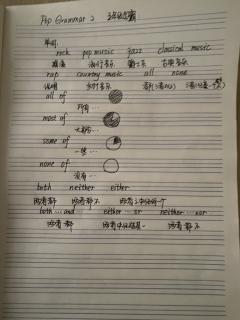 Pep Grammar 2
单词:
rock pop music jazz classical music
摇滚 流行音乐 爵士乐 古典音乐
rap country music all none
说唱 乡村音乐
all of
所有…
most of
大部分…
some of
一些…
none of
没有…
both neither either
两者都 两者都不
both … and … either … or neither … nor
两者都 两者都不